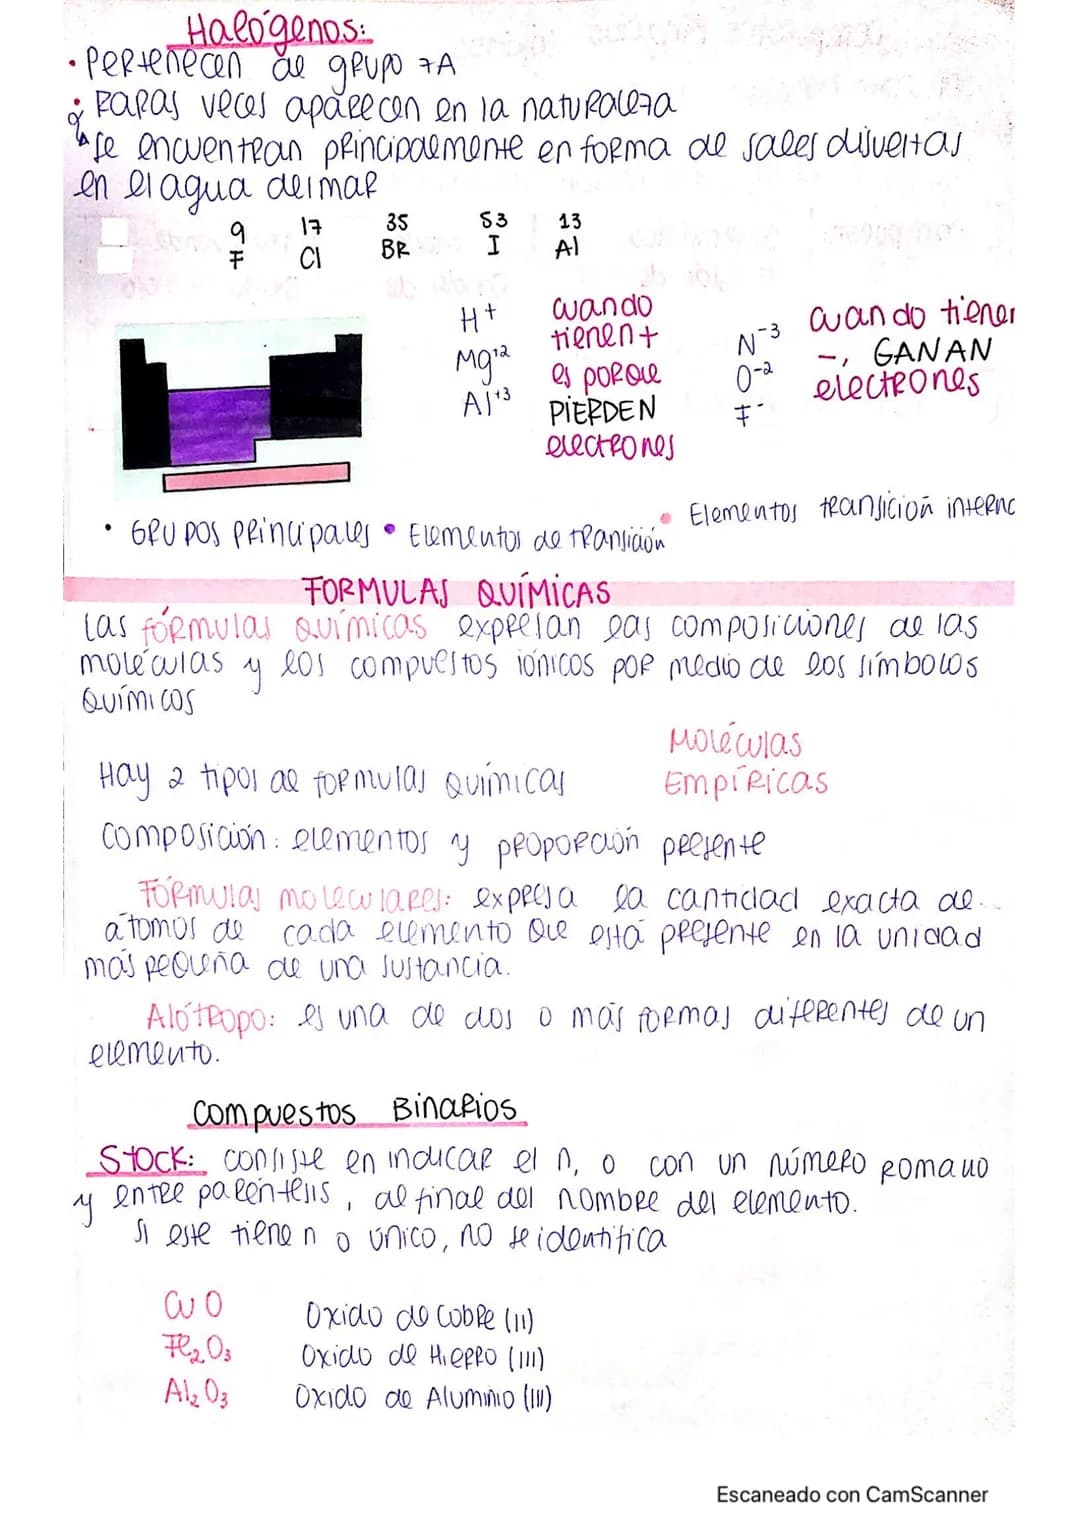 Halógenos:
• Pertenecen al grupo 7A
• Raras veces aparecen en la naturaleza
se encuentran principalmente en forma de sales disueltas
en el agua del mar
9 17 35 53 13
F Cl BR I Al
H+
Mg+2
Al+3
cuando
tienen +
es porque
PIERDEN
electrones
N-3
O-2
F-
cuando tienen
-, GANAN
electrones
• GRUPOS PRINCIPALES • Elementos de transición
• Elementos transición interna
FORMULAS QUÍMICAS
Las fórmulas químicas expresan las composiciones de las
moléculas y los compuestos iónicos por medio de los símbolos
Químicos
Hay 2 tipos de formulas Químicas
Moléculas
Empíricas
Composición: elementos y proporción presente
Fórmulas moleculares: expresa la cantidad exacta de
átomos de cada elemento que está presente en la unidad
más pequeña de una sustancia.
Alótropo: es una de dos o más formas diferentes de un
elemento.
Compuestos Binarios
STOCK: consiste en indicar el n, o con un número romano
y entre paréntesis, al final del nombre del elemento.
si este tiene n o único, no se identifica
CuO Oxido de Cobre (II)
Fe2O3 Oxido de Hierro (III)
Al2O3 Oxido de Aluminio (III)
Escaneado con CamScanner